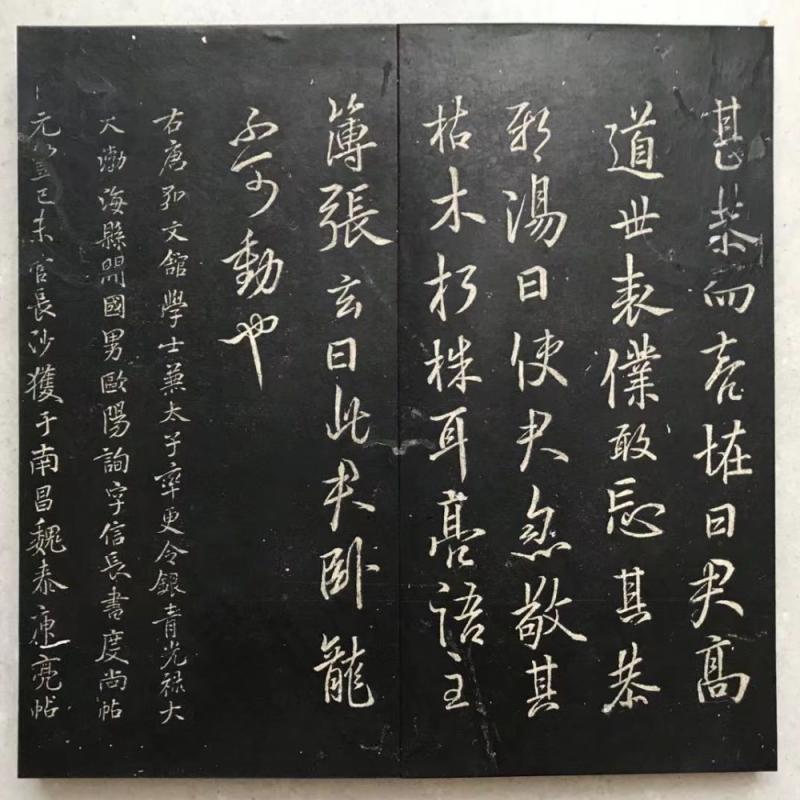 甚恭而曰君高
道世表僕敢忘其恭
邪湯曰使君忽敬其
枯木朽株耳亮語主
簿張玄曰此君臥龍
不可動也
右唐弘文館學士兼太子率更令銀青光祿大
夫渤海縣開國男歐陽詢字信長書度尚帖
元豐己未官長沙獲于南昌魏泰庾亮帖